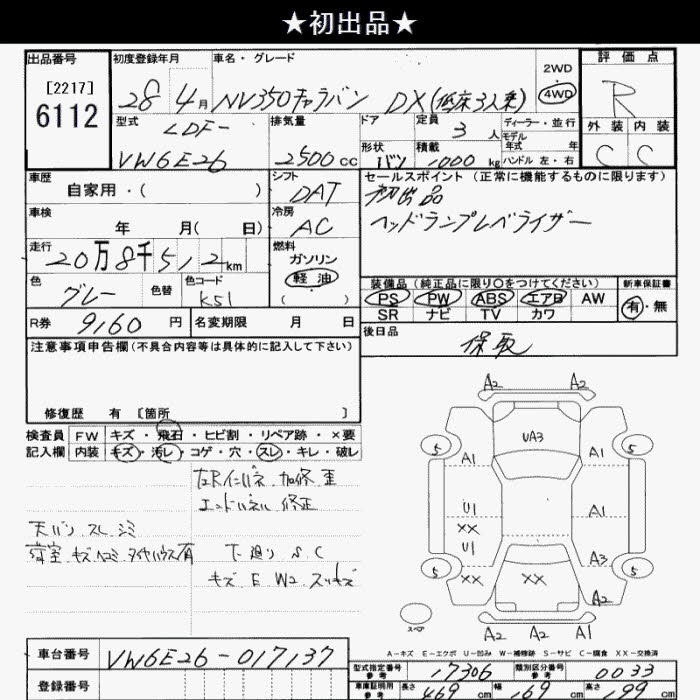 ★初出品★
出品番号 初度登録年月 車名・グレード 評価点
[2217] 6112 28年 4月 NV350キャラバン DX(低床3人乗) 2WD 4WD R
型式 排気量 ドア 定員 3人 ディーラー・並行 外装 内装
LDF- モデル年式 年 C C
VW6E26 2500cc 形状 バン 積載 1000kg ハンドル 左・右
車歴 シフト セールスポイント (正常に機能するものに限ります)
自家用・( ) DAT 初出品
車検 冷房 ヘッドランプレベライザー
年 月( 日) AC
走行 燃料
20万8千512km ガソリン
色 色替 色コード 軽油 装備品 (純正品に限り○をつけてください) 新車保証書
グレー K51 ( ) PS PW ABS エアB AW 有・無
SR ナビ TV カワ
R券 9160円 名変期限 月 日 後日品
注意事項申告欄(不具合内容等は具体的に記入して下さい) 保取
修復歴 有 [箇所 ]
検査員 FW キズ・飛石・ヒビ割・リペア跡・×要
記入欄 内装 キズ・汚レ・コゲ・穴・スレ・キレ・破レ
左Rインパネ 加修 歪
エンドパネル 修正
天バリ スレ シミ
荷室 キズ ヘコミ タイヤハウス有 下廻り S C
キズ E W2 スリキズ
A2 A2
UA3
5 A1 5
U1 A1
XX
U1
A3
5 XX XX 5
A2
スペア
A2 A2 A1
A-キズ E-エクボ U-凹み W-補修跡 S-サビ C-腐食 XX-交換済
車台番号 VW6E26-017137
型式指定番号 参考 17306 類別区分番号 参考 0033
登録番号 車庫証明用 参考 長さ 469cm 幅 169cm 高さ 199cm